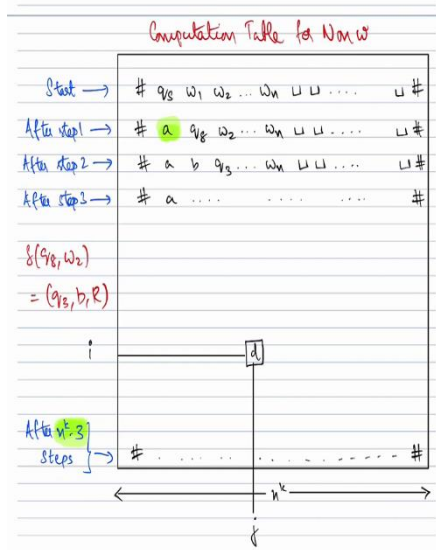 Computation Table for N on w
Start → # q_s w_1 w_2 ... w_n ⊔ ⊔ .... ⊔ #
After step 1 → # a q_8 w_2 ... w_n ⊔ ⊔ .... ⊔ #
After step 2 → # a b q_3 ... w_n ⊔ ⊔ .... ⊔ #
After step 3 → # a .... .... ... #
δ(q_8, w_2)
= (q_3, b, R)
i d
After n^k-3
Steps → # ............ #
n^k
j